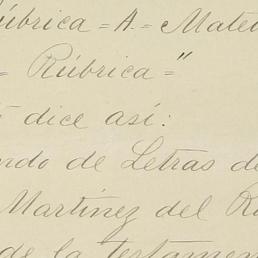 úbrica = A = Mateo
= Rúbrica = "
dice así:
ndo de Letras de
Martínez del R
de la testamen